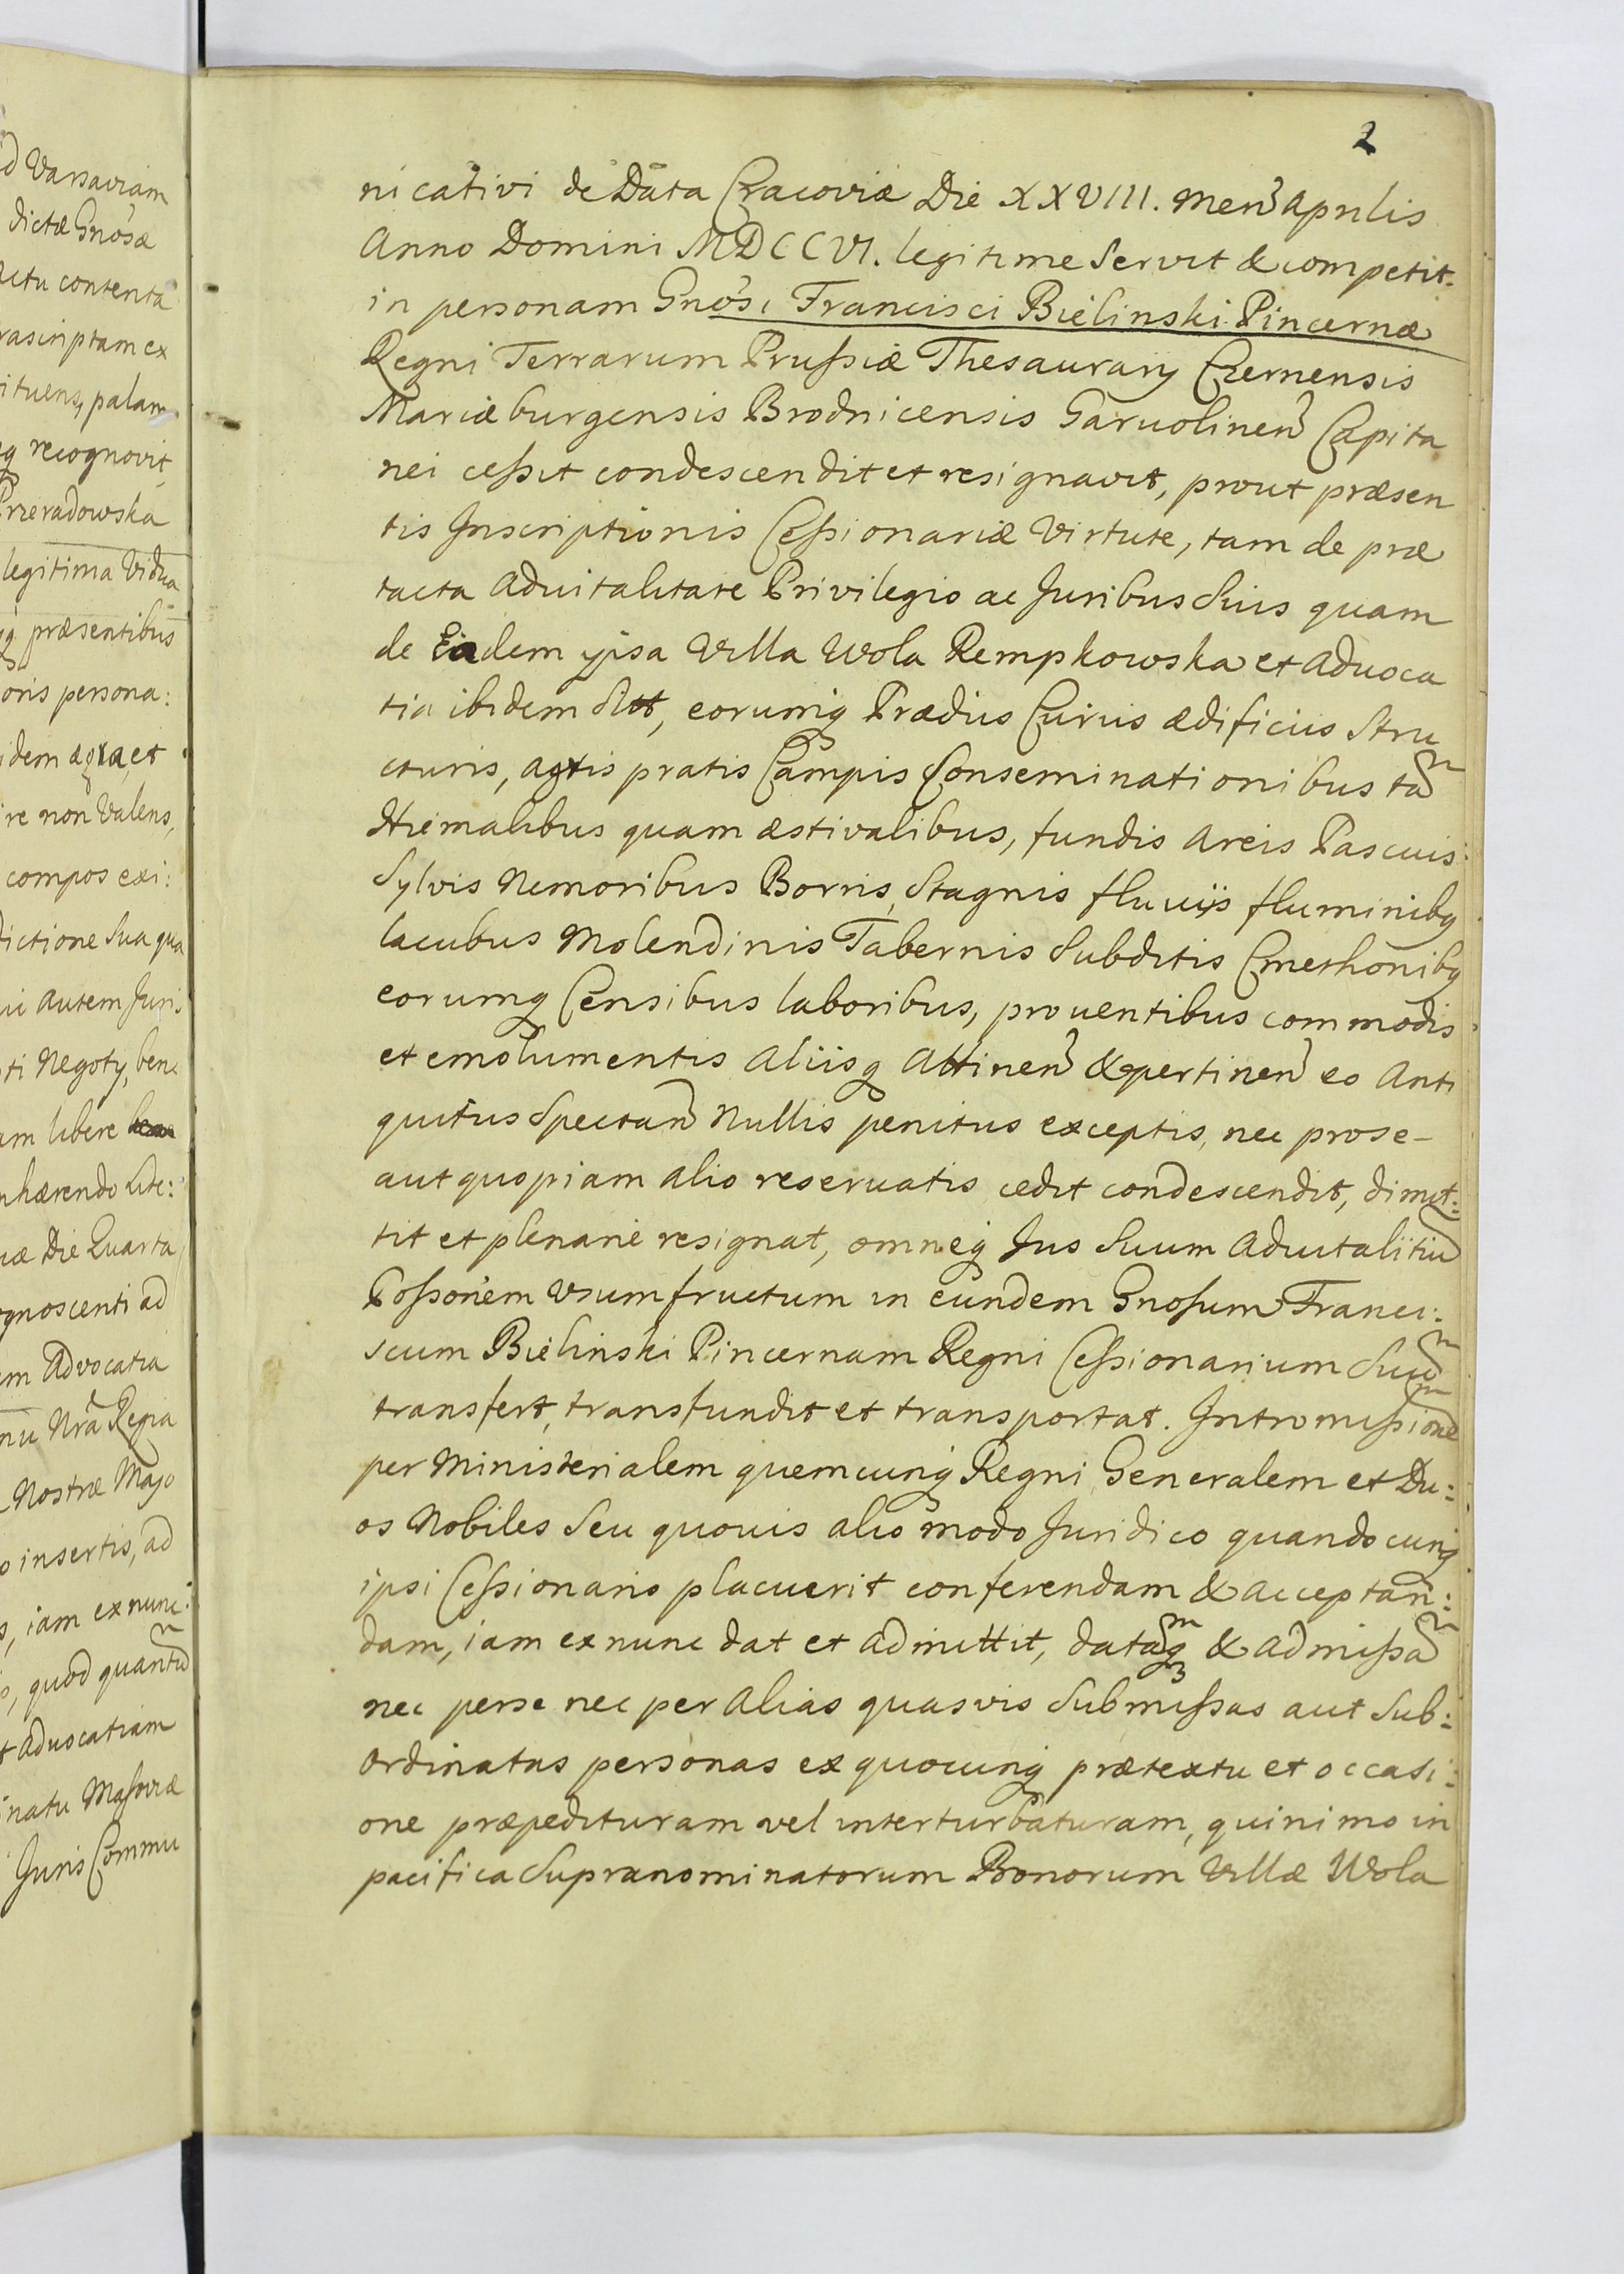 d Varsaviam
dictæ Gnosæ
actu contenta
rascriptam ex
ituens, palam
q recognovit,
Przeradowska
legitima Vidua
q præsentibus
oris persona:
idem ægra, et
re non Valens,
compos exi:
dictione Sua qua
ii autem Juris
ti Negotÿ, bene
am libere
nhærendo Lite:
uæ Die Quarta
ognoscenti ad
em Advocatia
nu Nrã Regia
Nostræ Majo
o insertis, ad
s, iam ex nunc:
o, quod quantu
t aduocatiam
inatu Masoviæ
Juris Commu
2
nicativi de Data Cracoviæ Die XXVIII. Men Aprilis
Anno Domini MDCCVI. legitime Servit & competit.
in personam Gnosi Francisci Bielinski Pincernæ
Regni Terrarum Prussiæ Thesaurarÿ Czernensis
Mariæburgensis Brodnicensis Garuolinen Capita
nei cessit condescendit et resignavit, prout præsen
tis Inscriptionis Cessionariæ Virtute, tam de præ
tacta aduitalitate Privilegio ac Juribus Suis quam
de Eadem ipsa Villa Wola Rempkowska et aduoca
tia ibidem Sitt, eorumq Prædiis Curiis ædificiis Stru
cturis, agris pratis Campis Conseminationibus ta
Hiemalibus quam æstivalibus, fundis Areis Pascuis
Sylvis Nemoribus Borris, Stagnis fluuÿs fluminibq
lacubus Molendinis Tabernis Subditis Cmethonibq
eorumq Censibus laboribus, prouentibus commodis
et emolumentis aliisq Attinen & pertinen eo Anti
quitus Spectan Nullis penitus exceptis, nec pro se-
aut quopiam alio reseruatis cedit condescendit, dimit:
tit et plenarie resignat, omneq Jus Suum Aduitalitiu
Possonem Vsumfructum in eundem Gnosum Franci:
scum Bielinski Pincernam Regni Cessionarium Suu
transfert, transfundit et transportat. Intromissione
per Ministerialem quemcunq Regni Generalem et Du:
os Nobiles Seu quouis alio modo Juridico quandocunq
ipsi Cessionario placuerit conferendam & acceptan:
dam, iam ex nunc dat et admittit, dataq & admissa
nec per se nec per Alias quasvis Submissas aut Sub:
ordinatas personas ex quocunq prætextu et occasi:
one præpedituram vel interturbaturam, quinimo in
pacifica Supranominatorum Bonorum Villæ Wola